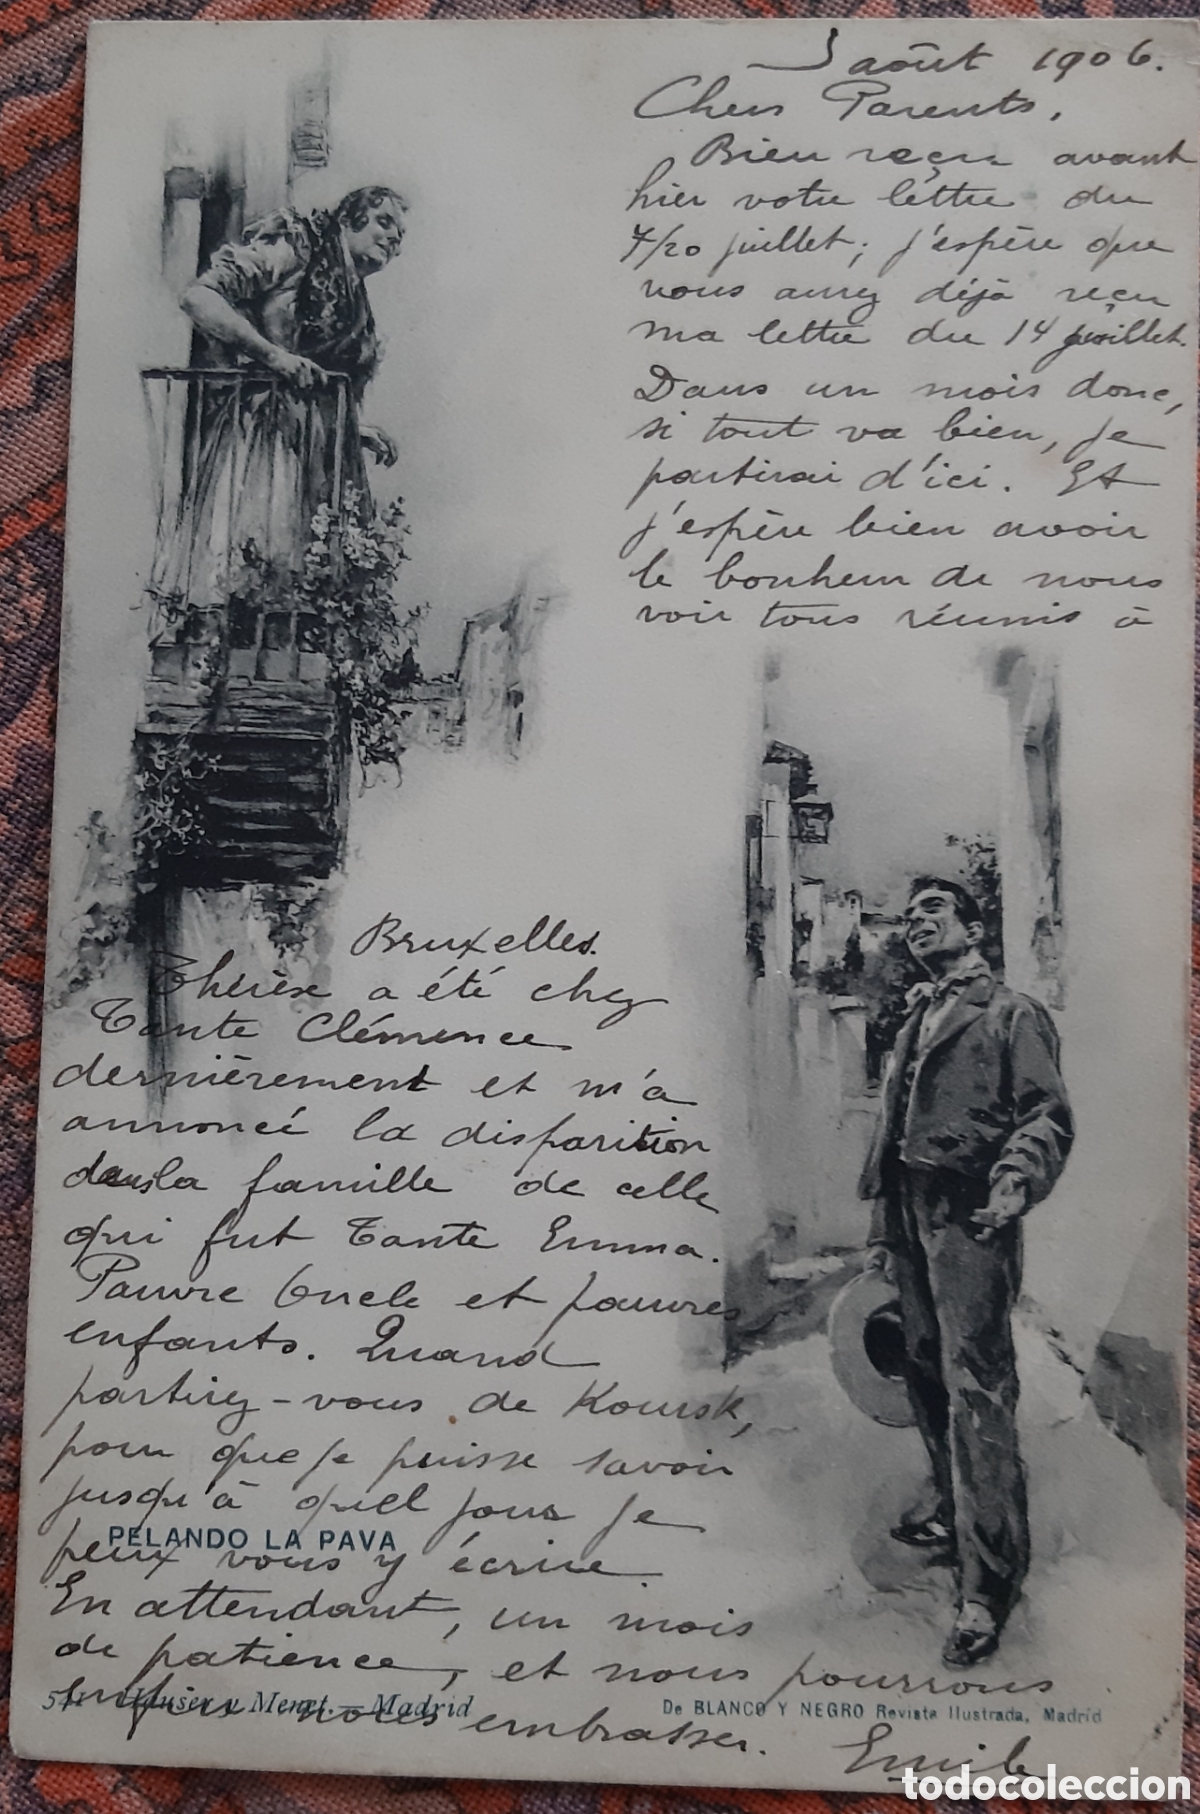 5 août 1906.
Chers Parents,
Bien reçu avant
hier votre lettre du
7/20 juillet; j'espère que
vous aurez déjà reçu
ma lettre du 14 juillet.
Dans un mois donc,
si tout va bien, je
partirai d'ici. Et
j'espère bien avoir
le bonheur de nous
voir tous réunis à
Bruxelles.
Thérèse a été chez
Tante Clémence
dernièrement et m'a
annoncé la disparition
dans la famille de celle
qui fut Tante Emma.
Pauvre Oncle et pauvres
enfants. Quand
partirez-vous de Koursk,
pour que je puisse savoir
jusqu'à quel jour je
peux vous y écrire.
PELANDO LA PAVA
En attendant, un mois
de patience, et nous pourrons
enfin nous embrasser.
Emile
541 Hauser y Menet.—Madrid
De BLANCO Y NEGRO Revista Ilustrada, Madrid
todocoleccion